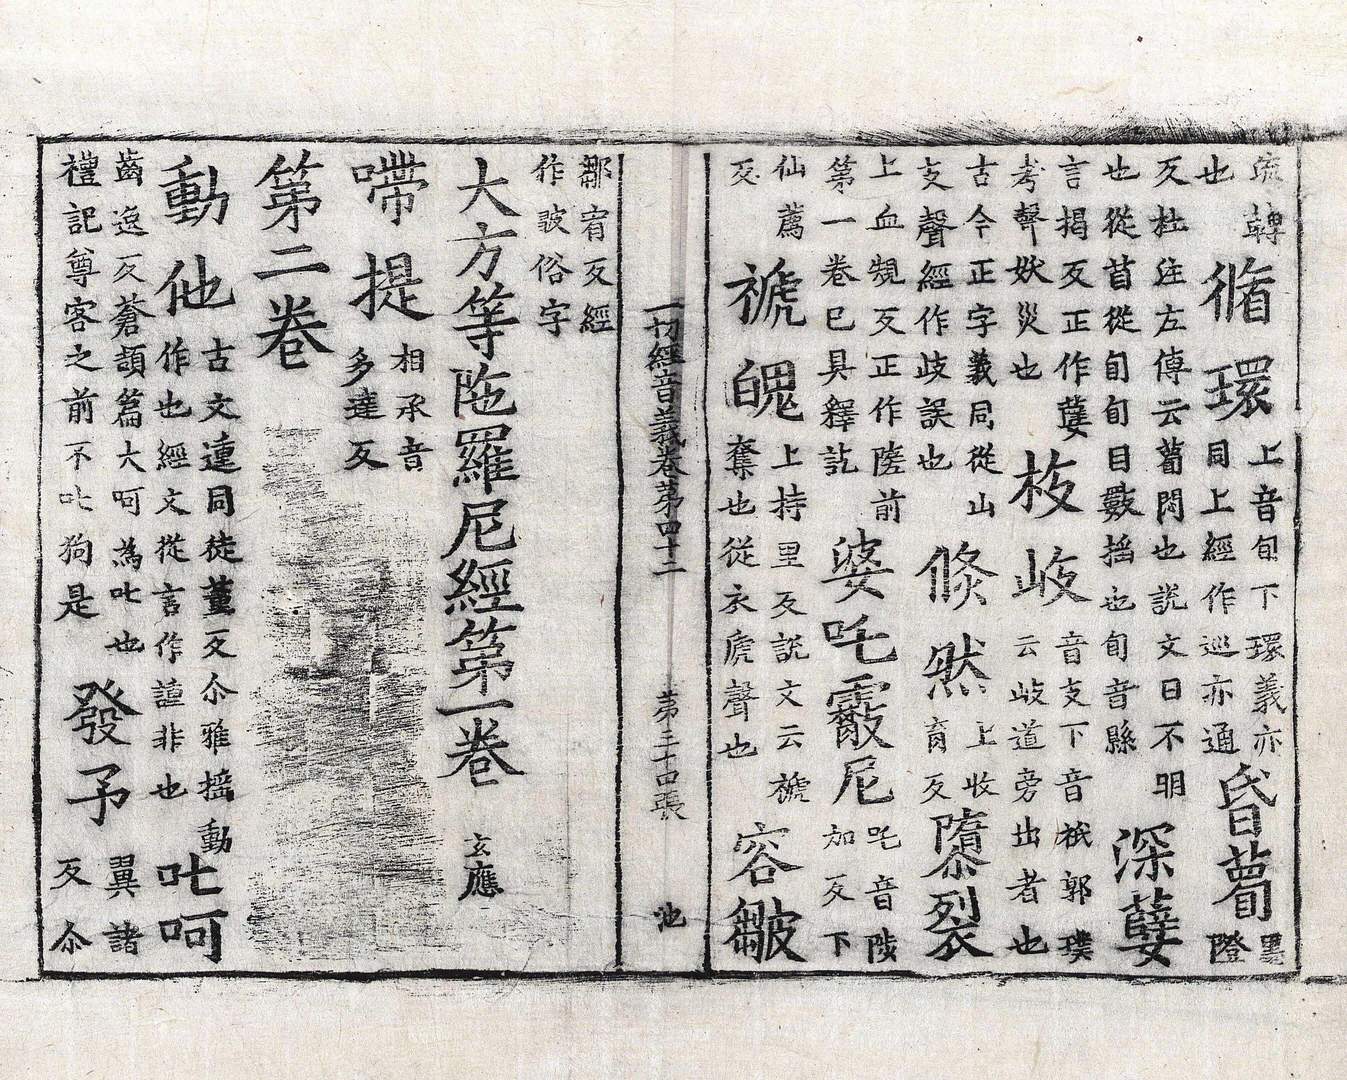 流轉也循環上音旬下環義亦同上經作巡亦通昏瞢墨隥
反杜注左傳云瞢悶也說文目不明也從苜從旬旬目數搖也旬音縣深孽
言揭反正作孽考聲妖災也枝岐音支下音祇郭璞云岐道旁出者也
古今正字義同從山支聲經作歧誤也倐然上收育反隳裂
上血規反正作隓前第一卷已具釋訖婆吒霰尼吒音陟加反下
仙薦反褫魄上持里反說文云褫奪也從衣虒聲也容皺
一切經音義卷第四十二 第三十四張 池
鄒宥反經作詖俗字
大方等陁羅尼經第一卷 玄應
㗣提相承音多達反
第二卷
動他古文連同徒董反尒雅搖動作也經文從言作諥非也叱呵
齒逸反蒼頡篇大呵為叱也禮記尊客之前不叱狗是發予翼諸反尒